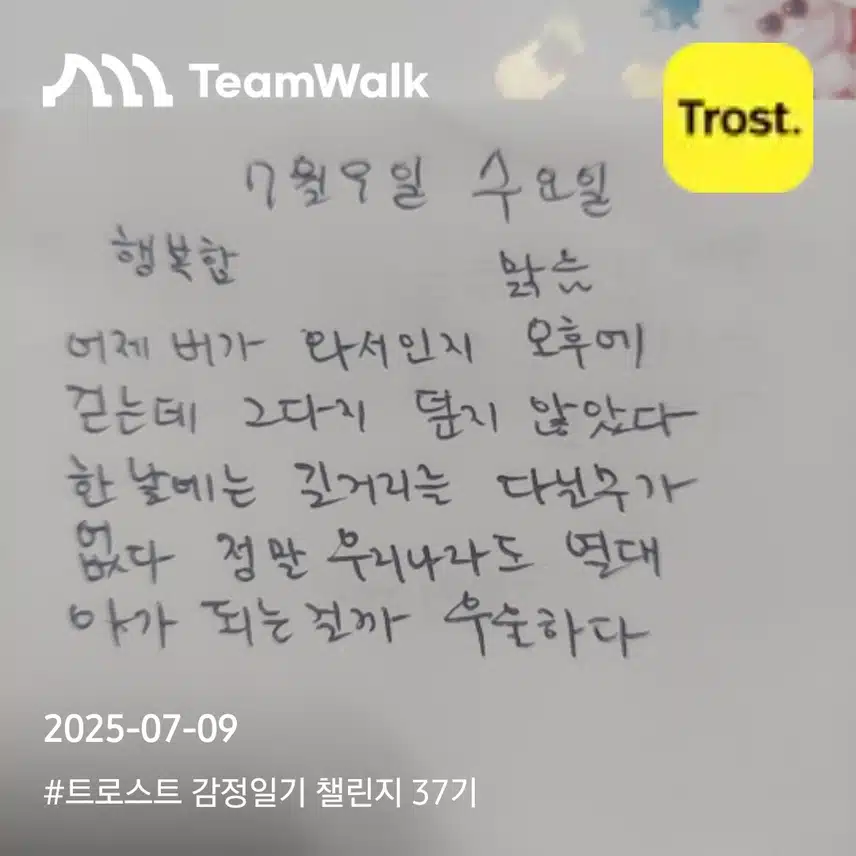 TeamWalk
Trost.
7월 9일 수요일
행복함 맑음
어제 버가 와서인지 오후에
걷는데 그다지 덥지 않았다
한낮에는 길거리를 다닐수가
없다 정말 우리나라도 열대
아가 되는걸까 우울하다
2025-07-09
#트로스트 감정일기 챌린지 37기